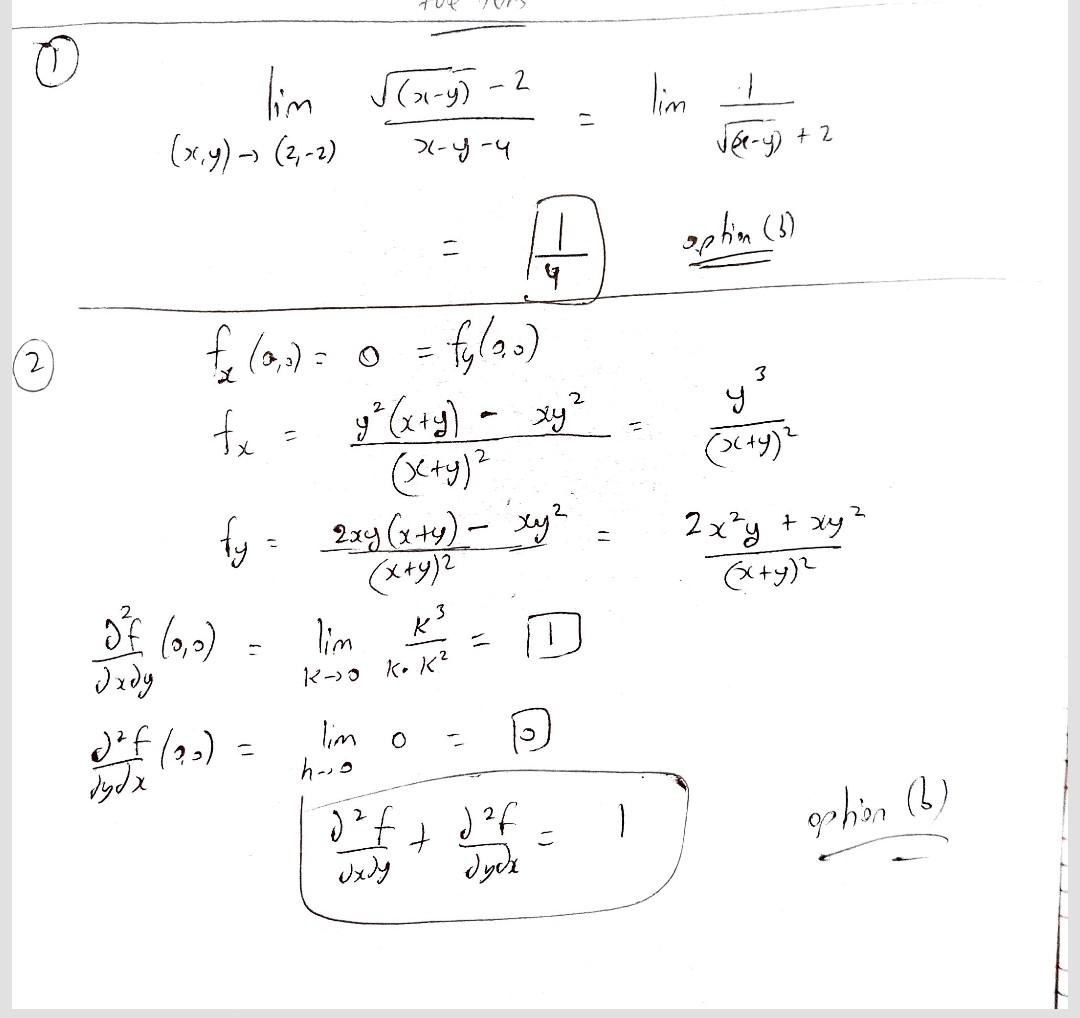 ①
lim (x,y)→(2,-2) √(x-y) - 2 / x-y-4 = lim 1 / √(x-y) + 2
= 1/4 option (b)
② f_x (0,0) = 0 = f_y(0,0)
f_x = y²(x+y) - xy² / (x+y)² = y³ / (x+y)²
f_y = 2xy(x+y) - xy² / (x+y)² = 2x²y + xy² / (x+y)²
∂²f/∂x∂y (0,0) = lim k→0 k³ / k·k² = 1
∂²f/∂y∂x (0,0) = lim h→0 0 = 0
∂²f/∂x∂y + ∂²f/∂y∂x = 1 option (b)